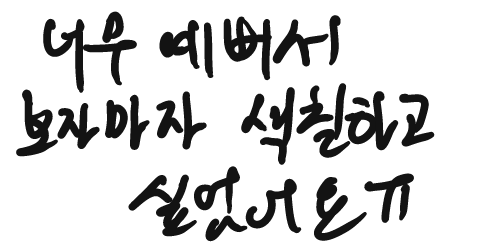 너무 예뻐서
보자마자 색칠하고
싶었어요ㅠ